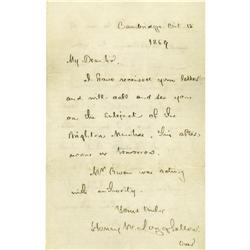 Cambridge. Oct 12
1869
My Dear Sir,
I have received your letter
and will call and see you
on the subject of the
Brighton Meadows, this after
noon or tomorrow.
Mr Owen was acting
with authority.
Yours truly
Henry W. Longfellow
over